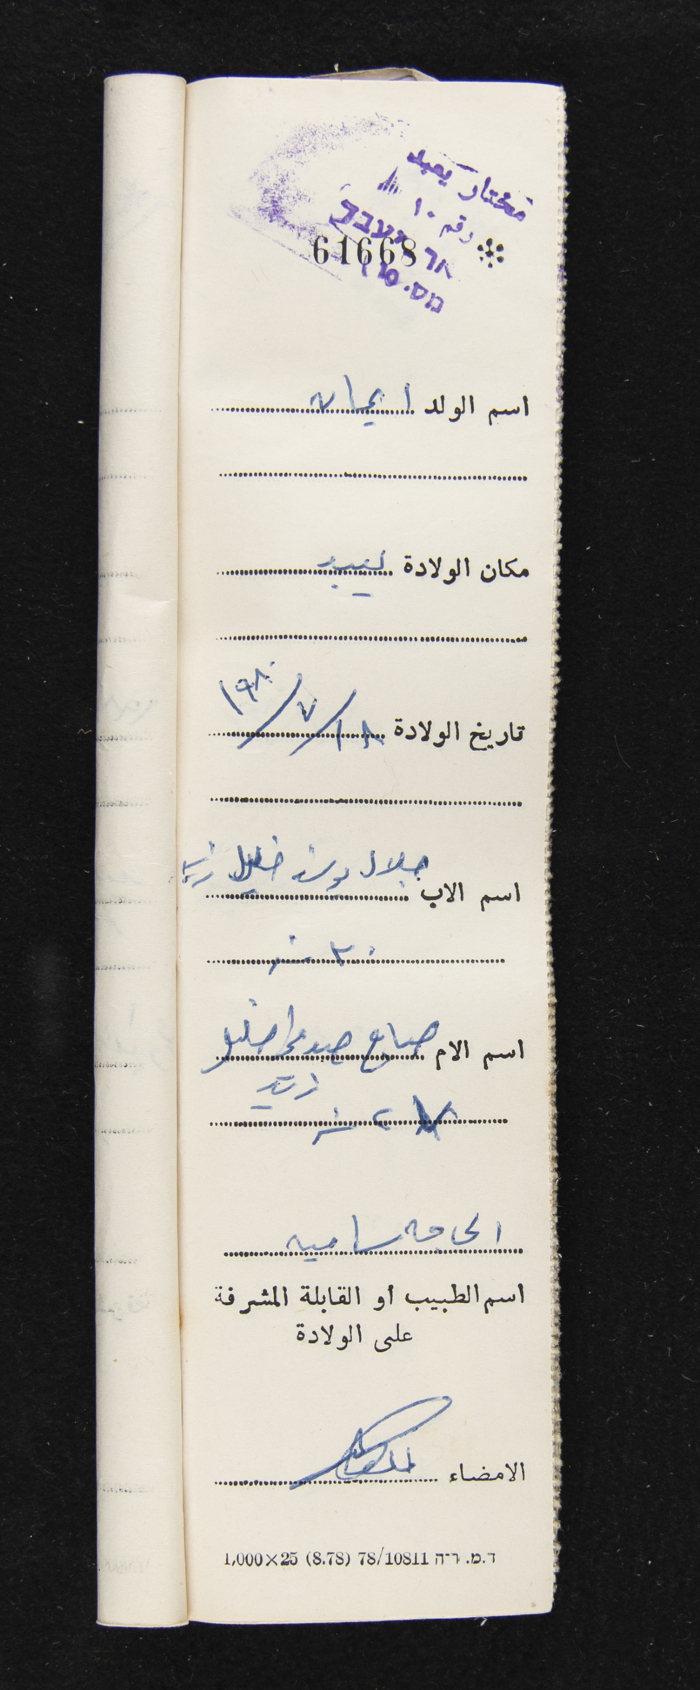 مختار يعبد
رقم ١٠
יעבד
מס.
61668
اسم الولد ايمان
مكان الولادة يعبد
تاريخ الولادة ١٨/٧/١٩٨٠
اسم الاب جلال يوسف خليل زيد
٣٠ سنه
اسم الام صباح صدقي خليل
زيد
٢٧ سنه
الحاجه ساميه
اسم الطبيب أو القابلة المشرفة
على الولادة
الامضاء
ד.מ. ר־ה 78/10811 (8.78) 1,000×25